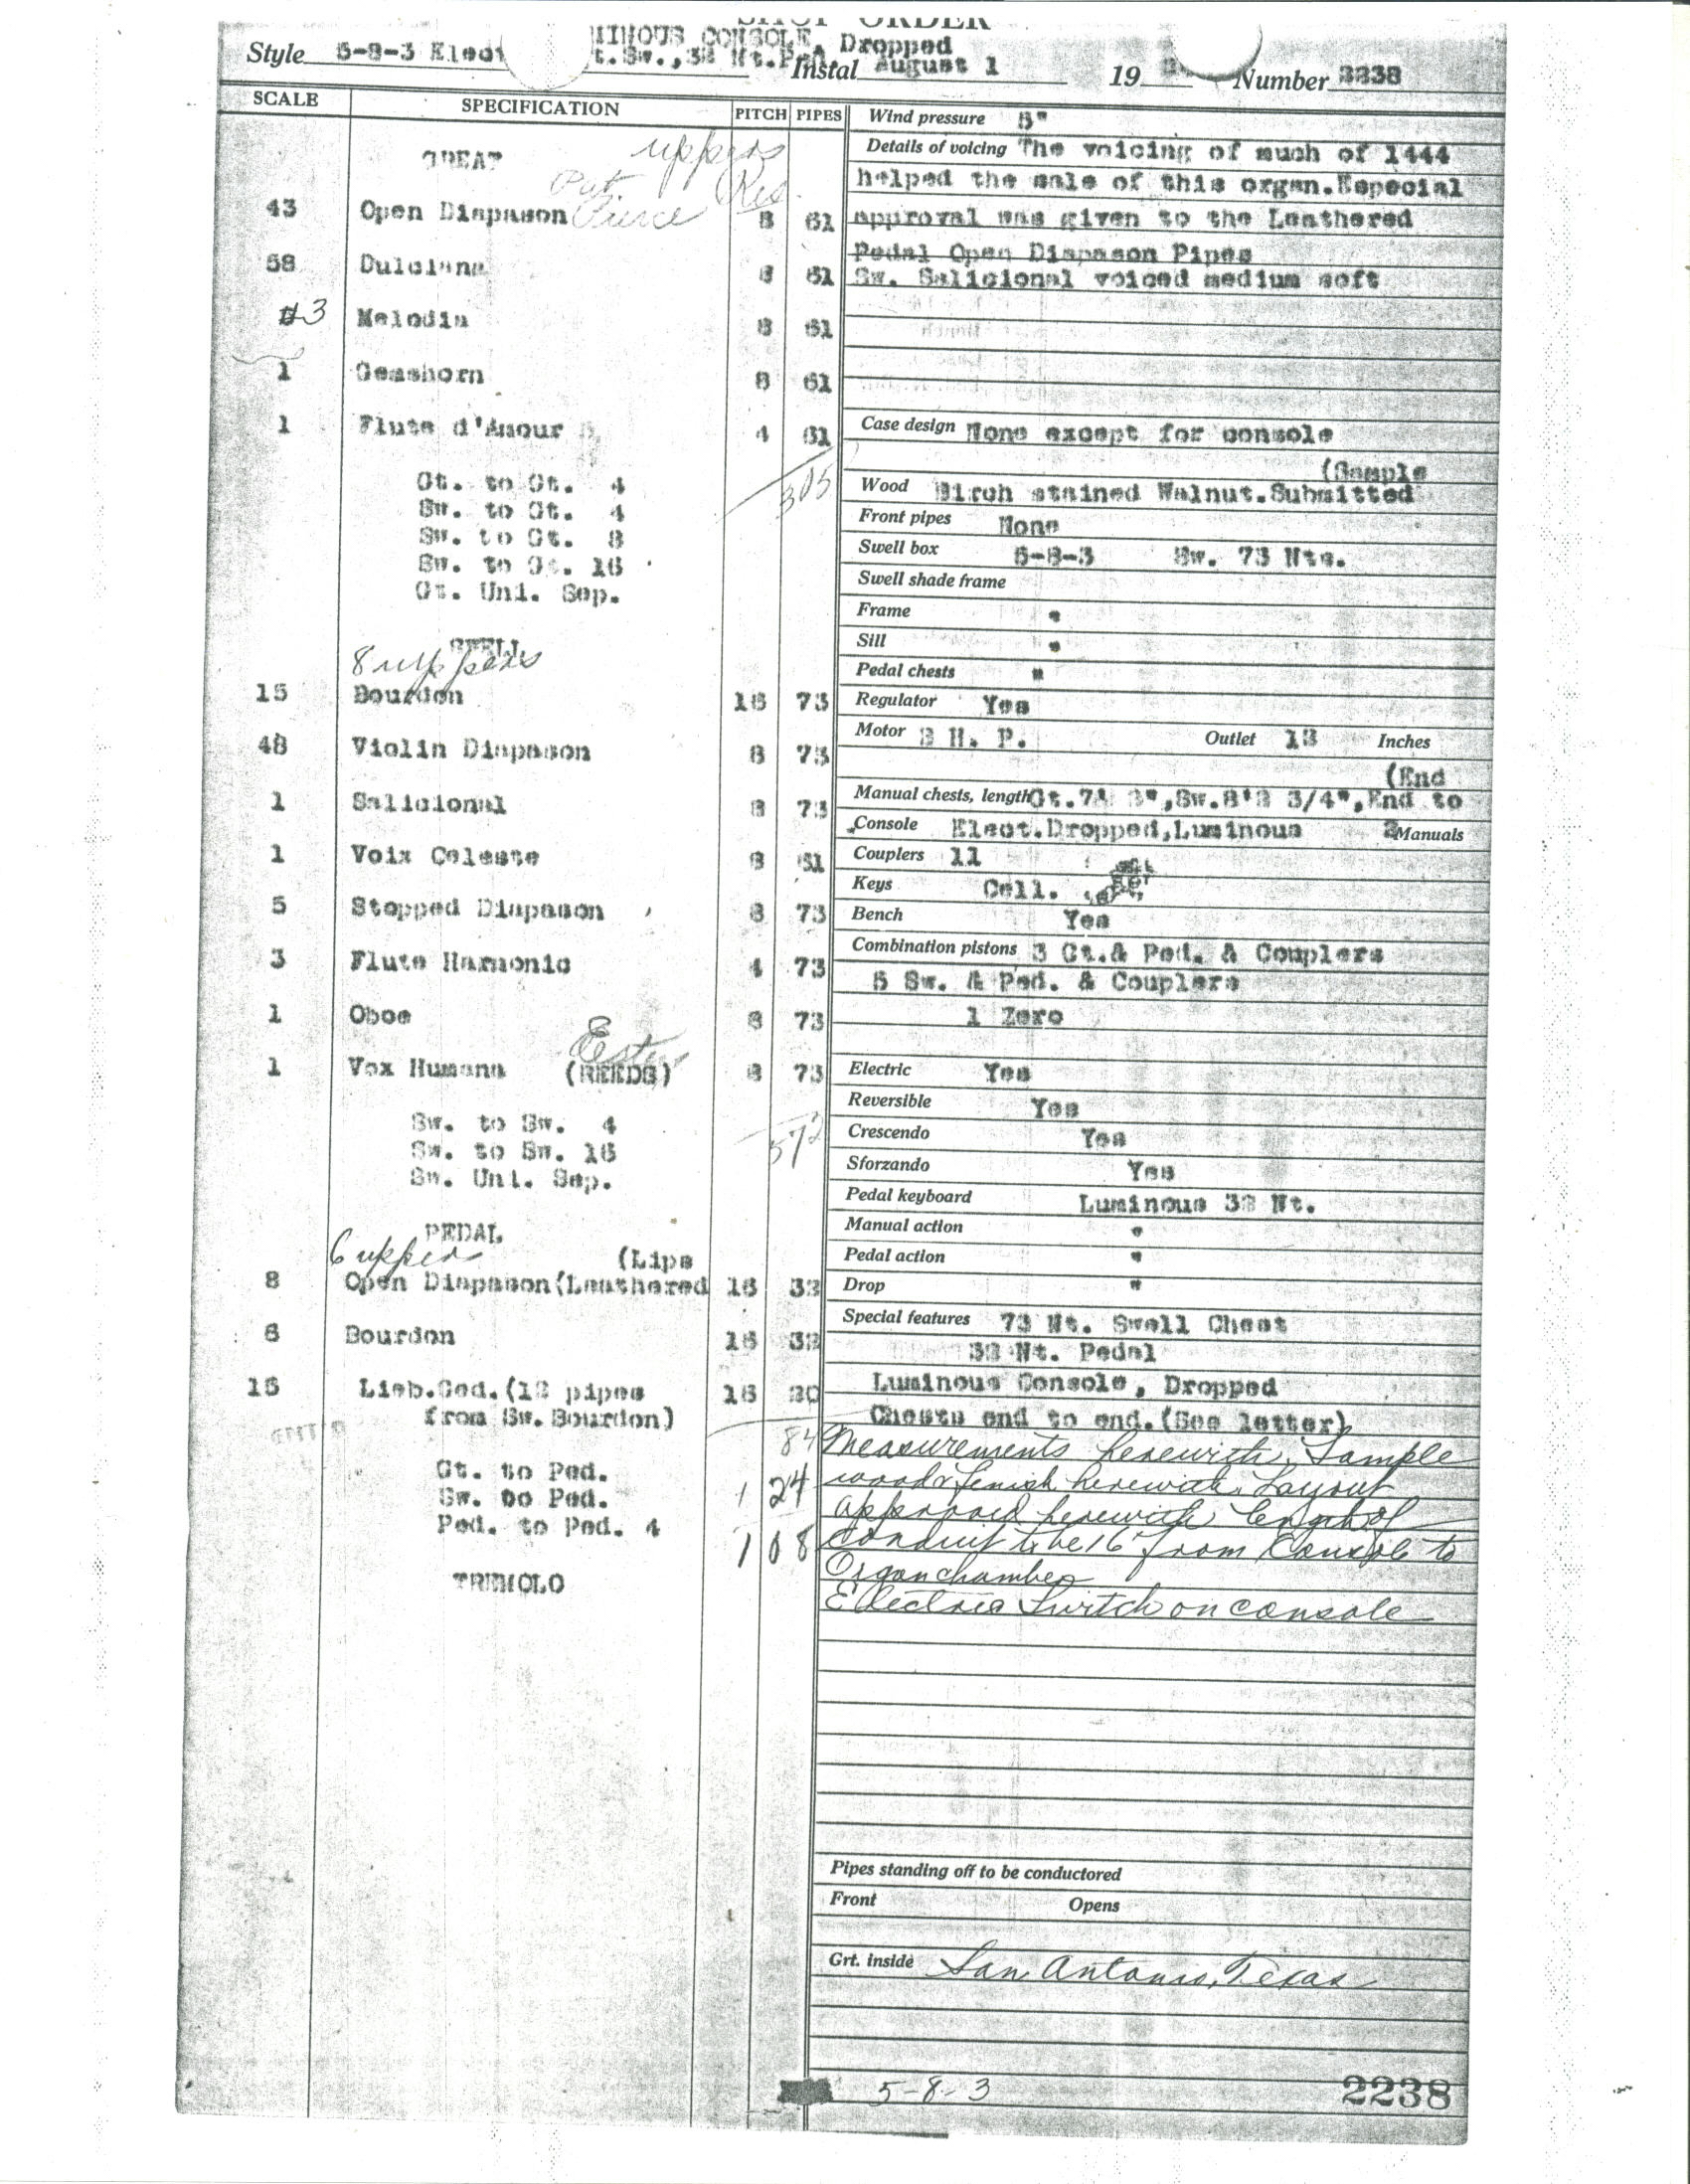 SHOP ORDER
MINOUS CONSOLE, Dropped
Style 5-8-3 Elect t.Sw.,32 Nt.Ped. Instal August 1 19 Number 2238
SCALE SPECIFICATION PITCH PIPES
GREAT uppers
Put Res.
43 Open Diapason Pierce 8 61
58 Dulciana 8 61
#3 Melodia 8 61
1 Gemshorn 8 61
1 Flute d'Amour 4 61
305
Gt. to Gt. 4
Sw. to Gt. 4
Sw. to Gt. 8
Sw. to Gt. 16
Gt. Uni. Sep.
SWELL
8 uppers
15 Bourdon 16 73
48 Violin Diapason 8 73
1 Salicional 8 73
1 Voix Celeste 8 61
5 Stopped Diapason 8 73
3 Flute Harmonic 4 73
1 Oboe 8 73
Estey
1 Vox Humana (REEDS) 8 73
572
Sw. to Sw. 4
Sw. to Sw. 16
Sw. Uni. Sep.
PEDAL
6 uppers (Lips
8 Open Diapason(Leathered 16 32
6 Bourdon 16 32
15 Lieb.Ged.(12 pipes 16 20
from Sw.Bourdon)
84
Gt. to Ped.
Sw. to Ped. 124
Ped. to Ped. 4
108
TREMOLO
Wind pressure 5"
Details of voicing The voicing of much of 1444
helped the sale of this organ.Especial
approval was given to the Leathered
Pedal Open Diapason Pipes
Sw. Salicional voiced medium soft
Case design None except for console
(Sample
Wood Birch stained Walnut.Submitted
Front pipes None
Swell box 5-8-3 Sw. 73 Nts.
Swell shade frame
Frame "
Sill "
Pedal chests "
Regulator Yes
Motor 2 H. P. Outlet 12 Inches
(End
Manual chests, length Gt.7' 3",Sw.8'2 3/4",End to
Console Elect.Dropped,Luminous 2 Manuals
Couplers 11
Keys Cell.
Bench Yes
Combination pistons 3 Gt.& Ped. & Couplers
5 Sw. & Ped. & Couplers
1 Zero
Electric Yes
Reversible Yes
Crescendo Yes
Sforzando Yes
Pedal keyboard Luminous 32 Nt.
Manual action "
Pedal action "
Drop "
Special features 73 Nt. Swell Chest
32 Nt. Pedal
Luminous Console, Dropped
Chests end to end.(See letter)
Measurements herewith, Sample
wood & finish herewith Layout
approved herewith length of
conduit to be 16' from Console to
Organ chamber
Electric Switch on console
Pipes standing off to be conductored
Front Opens
Grt. inside San Antonio, Texas
5-8-3 2238